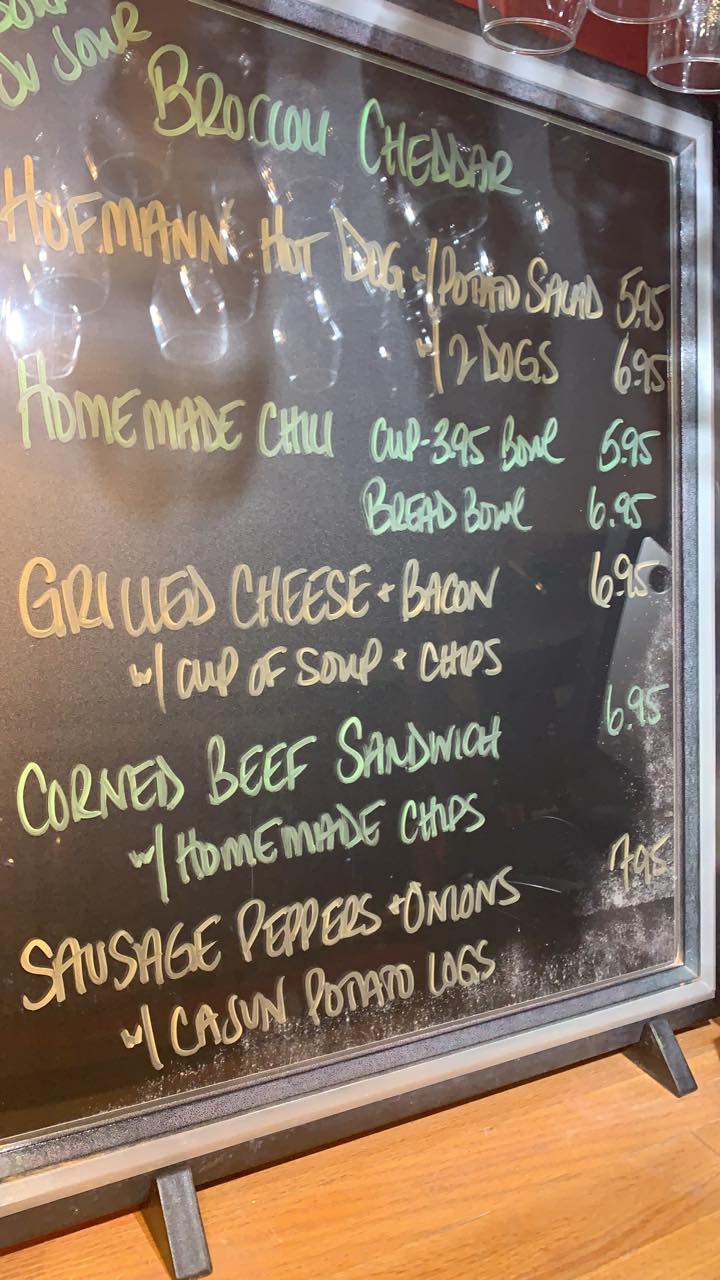 SOUP
DU JOUR
BROCCOLI CHEDDAR
HOFMANN HOT DOG w/ POTATO SALAD 5.95
w/ 2 DOGS 6.95
HOMEMADE CHILI CUP-3.95 BOWL 5.95
BREAD BOWL 6.95
GRILLED CHEESE + BACON 6.95
w/ CUP OF SOUP + CHIPS
CORNED BEEF SANDWICH 6.95
w/ HOMEMADE CHIPS
SAUSAGE PEPPERS + ONIONS 7.95
w/ CAJUN POTATO LOGS